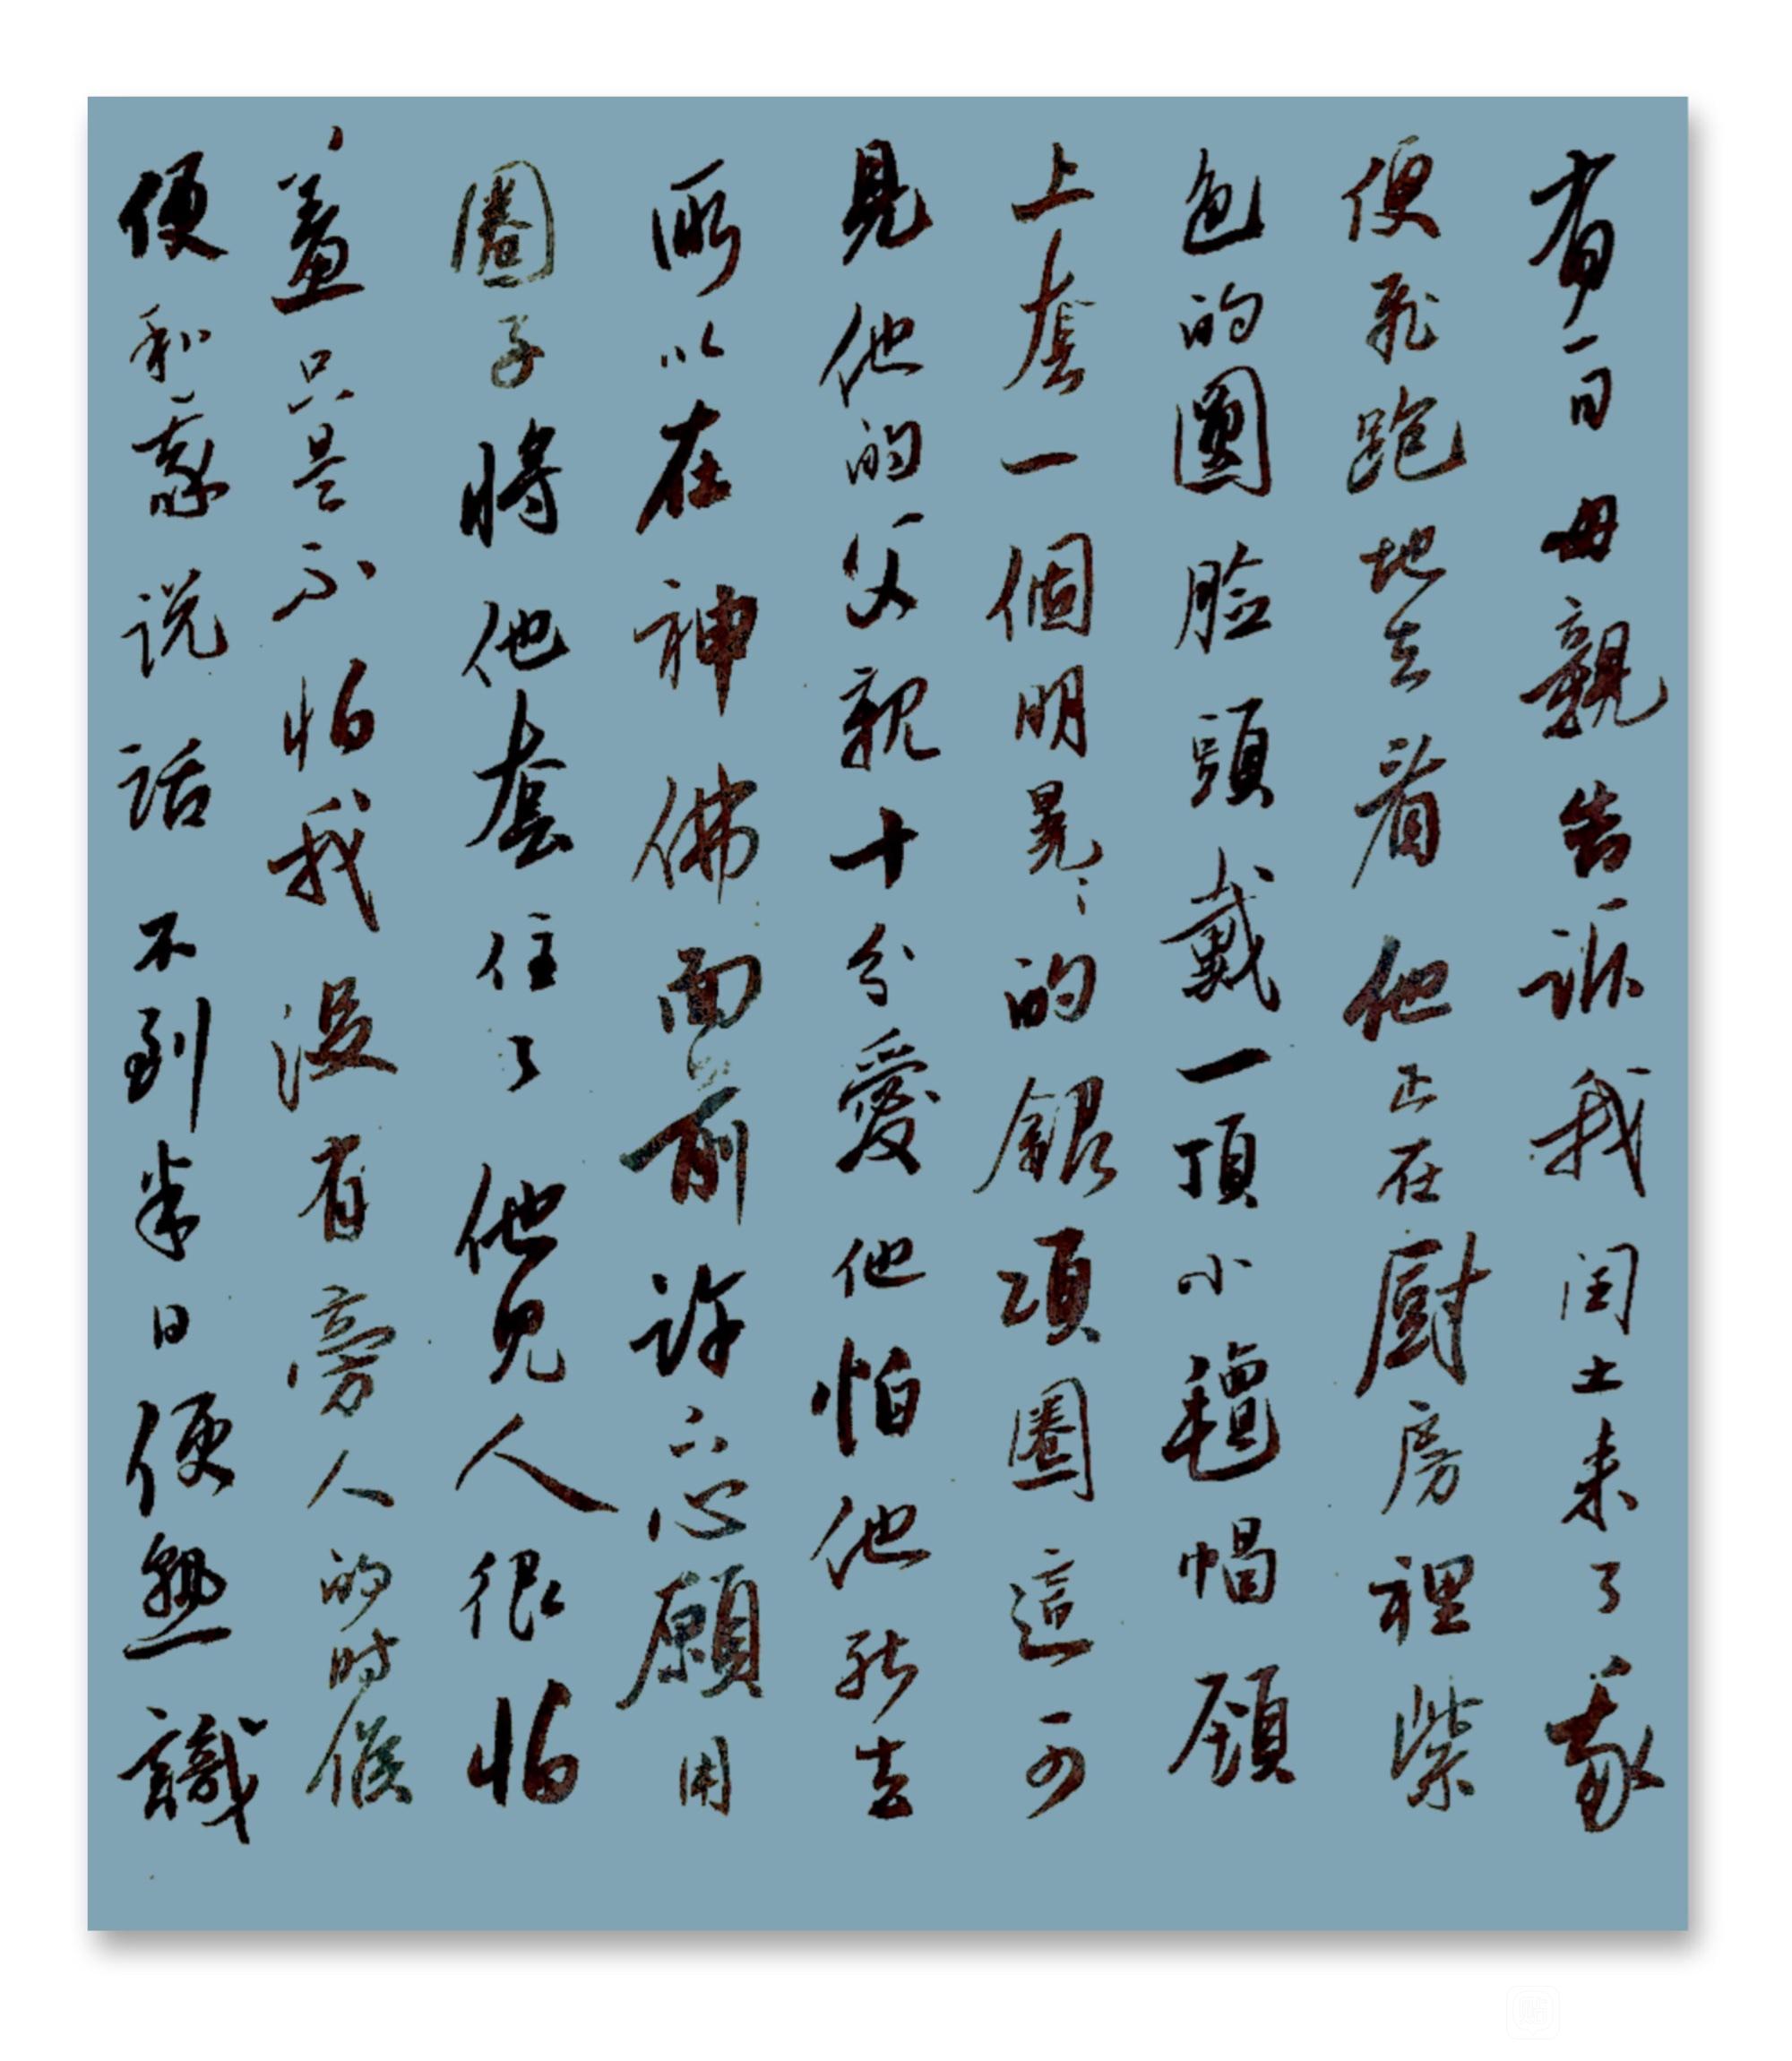 有一日母親告訴我閏土来了我
便飛跑地去看他正在厨房裡紫
色的圓脸頭戴一頂小氊帽頸
上套一個明晃〻的銀項圈這可
見他的父親十分愛他怕他死去
所以在神佛面前許下心願用
圈子將他套住了他見人很怕
羞只是不怕我沒有旁人的时候
便和我说話不到半日便熟識